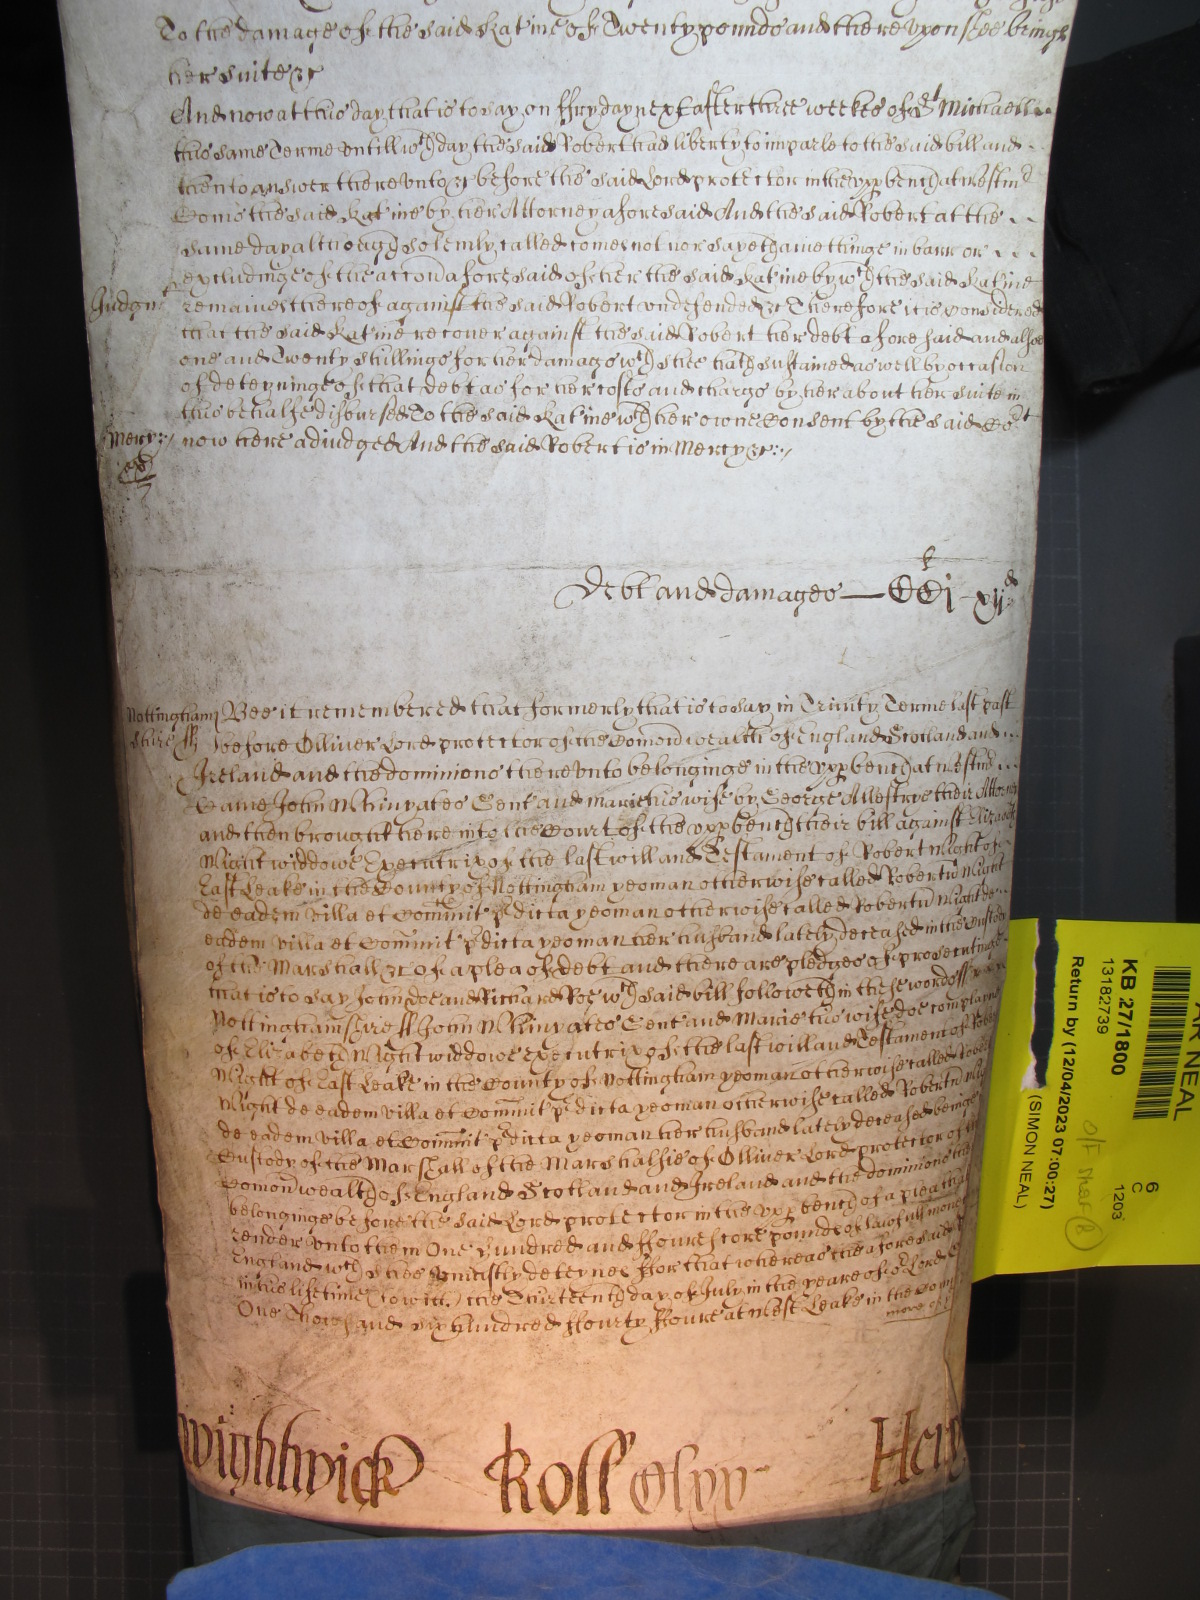 To the damage of the said Katine of Twenty pounds and thereupon shee brings
her suite &c
And now at this day that is to say on ffryday next after three weekes of St Michaell
this same Terme untill wch day the said Robert had liberty to imparle to the said bill and
then to answer thereunto &c before the said Lord protector in the upp bench at Westmr
Come the said Katine by her Attorney aforesaid And the said Robert at the
same day although solemly called comes not nor sayeth anie thinge in barr or
excludinge of the accon aforesaid of her the said Katine by wch the said Katine
Judgmt remaines thereof against the said Robert undefended &c Therefore it is considered
that the said Katine recover against the said Robert her debt aforesaid and alsoe
one and Twenty shillings for her damags wch shee hath susteined as well by occasion
of deteyninge of that debt as for her costs and chargs by her about her suite in
this behalfe disbursed To the said Katine wth her owne Consent by the said Cort
Mercy now here adiudged And the said Robert is in Mercy &c
Debt and damages — CCj li xij d
Nottingham Bee it remembered that formerly that is to say in Trinity Terme last past
shire ss before Olliver Lord protector of the Comonwealth of England Scotland and
Ireland and the dominions thereunto belonginge in the upp bench at Westmr
Came John Whinyates Gent and Marie his wife by George Allestrye their Attorney
and then brought here into the Court of the upp bench their bill against Elizabeth
Wight widdowe Executrix of the last will and Testament of Robert Wight of
East Leake in the County of Nottingham yeoman otherwise called Robertu Wight
de eadem villa et Comit pdicta yeoman otherwise called Robertu Wight de
eadem villa et Comit pdicta yeoman her husband lately deceased in the Custody
of the Marshall &c of a plea of debt and there are pledges of prosecutinge
that is to say John doe and Richard Roe wch said bill followeth in these words ss
Nottinghamshire ss John Whinyates Gent and Marie his wife doe complaine
of Elizabeth Wight widdowe executrix of the last will and Testament of Robert
Wight of East Leake in the County of Nottingham yeoman otherwise called Robert
Wight de eadem villa et Comit pdicta yeoman otherwise called Robertu Wight
de eadem villa et Comit pdicta yeoman her husband lately deceased beinge
Custody of the Marshall of the Marshalsie of Olliver Lord protector of the
Comonwealth of England Scotland and Ireland and the dominions
belonginge before the said Lord protector in the upp bench of a plea that
render unto them One hundred and ffourescore pounds of lawfull money
England wch shee uniustly deteynes ffor that whereas the aforesaid
in his lifetime (to witt) the Thirteenth day of July in the yeare of or Lord
One Thousand six hundred ffourty ffoure at West Leake in the County
more of
Wightwick Roll Olyv
AR NEAL
KB 27/1800
13182739
Return by (12/04/2023 07:00:27)
(SIMON NEAL)
6
C
1203